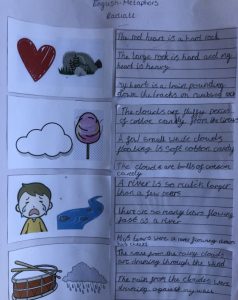 English-Metaphors
The red heart is a hard rock
The large rock is hard and my
heart is heavy
My heart is a train pounding
down the tracks on
The clouds are fluffy pieces
of cotton candy from the
A few small white clouds
floating is soft cotton candy
The clouds are balls of cotton
candy
A river is so much longer
than a few
There are so many tears flowing
is a river
tears were a river flowing down
The rain from the clouds
are drumming through the
The rain from the clouds were
drumming against my wall